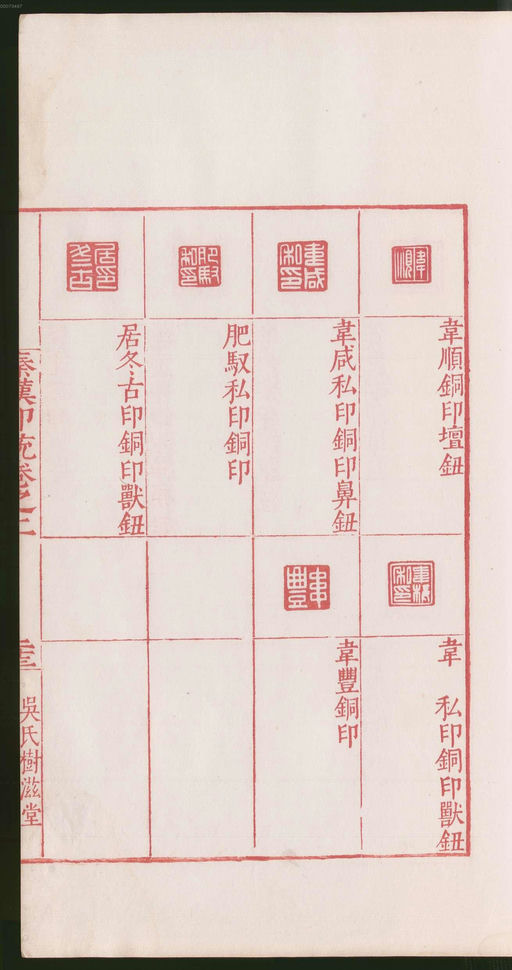 00073487
韋順銅印壇鈕
韋咸私印銅印鼻鈕
肥馭私印銅印
居冬古印銅印獸鈕
韋　私印銅印獸鈕
韋豐銅印
秦漢印范卷之二
吳氏樹滋堂